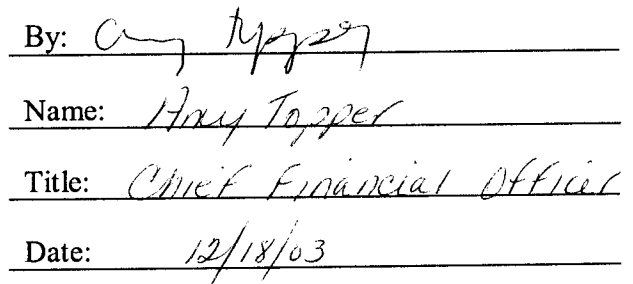 By: Amy Topper
Name: Amy Topper
Title: Chief Financial Officer
Date: 12/18/03